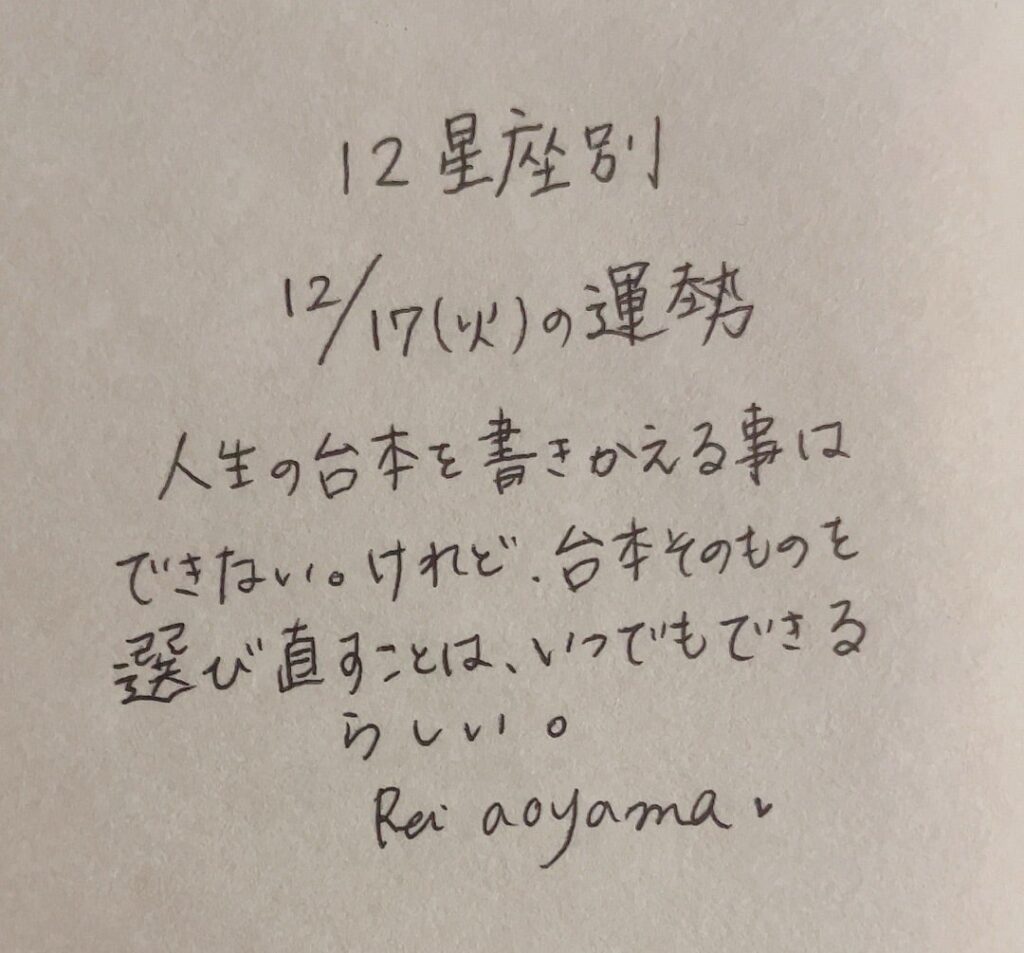 12星座別
12/17(火)の運勢
人生の台本を書きかえる事は
できない。けれど、台本そのものを
選び直すことは、いつでもできる
らしい。
Rei aoyama